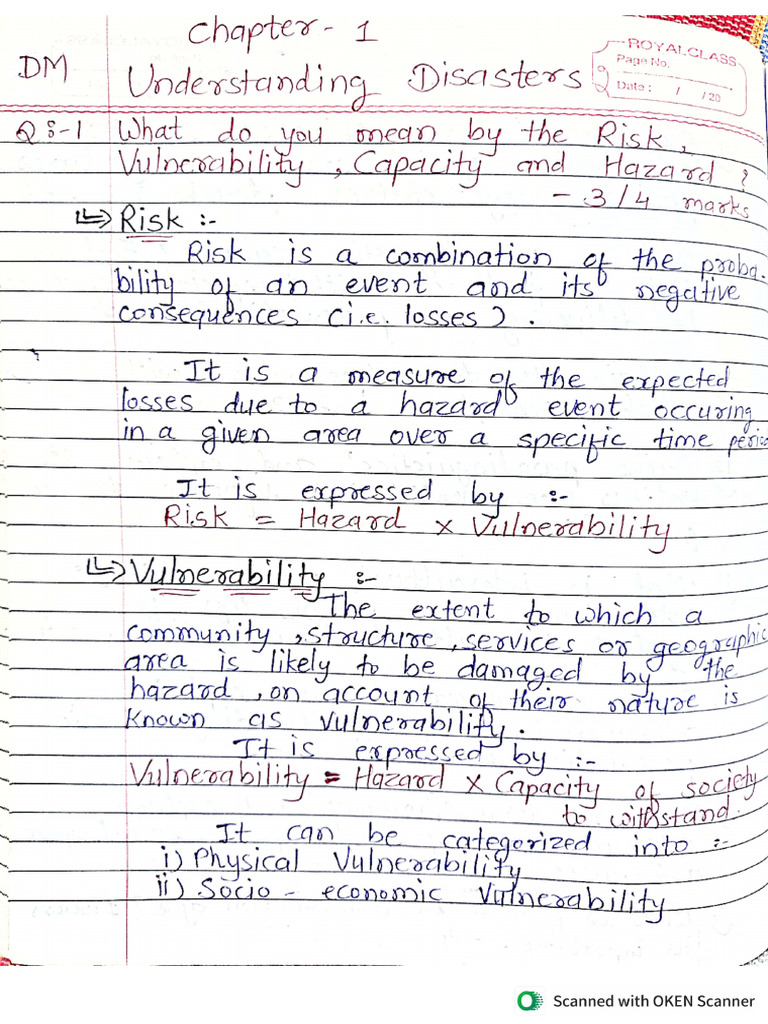 Chapter - 1
ROYALCLASS
Page No.
Date : / /20
DM
Understanding Disasters
Q :-1 What do you mean by the Risk,
Vulnerability, Capacity and Hazard ?
- 3/4 marks
↳ Risk :-
Risk is a combination of the proba-
bility of an event and its negative
consequences (i.e. losses).
It is a measure of the expected
losses due to a hazard event occuring
in a given area over a specific time period
It is expressed by :-
Risk = Hazard × Vulnerability
↳ Vulnerability :-
The extent to which a
community, structure, services or geographic
area is likely to be damaged by the
hazard, on account of their nature is
known as vulnerability.
It is expressed by :-
Vulnerability = Hazard × Capacity of society
to withstand.
It can be categorized into :-
i) Physical Vulnerability
ii) Socio - economic Vulnerability
Scanned with OKEN Scanner